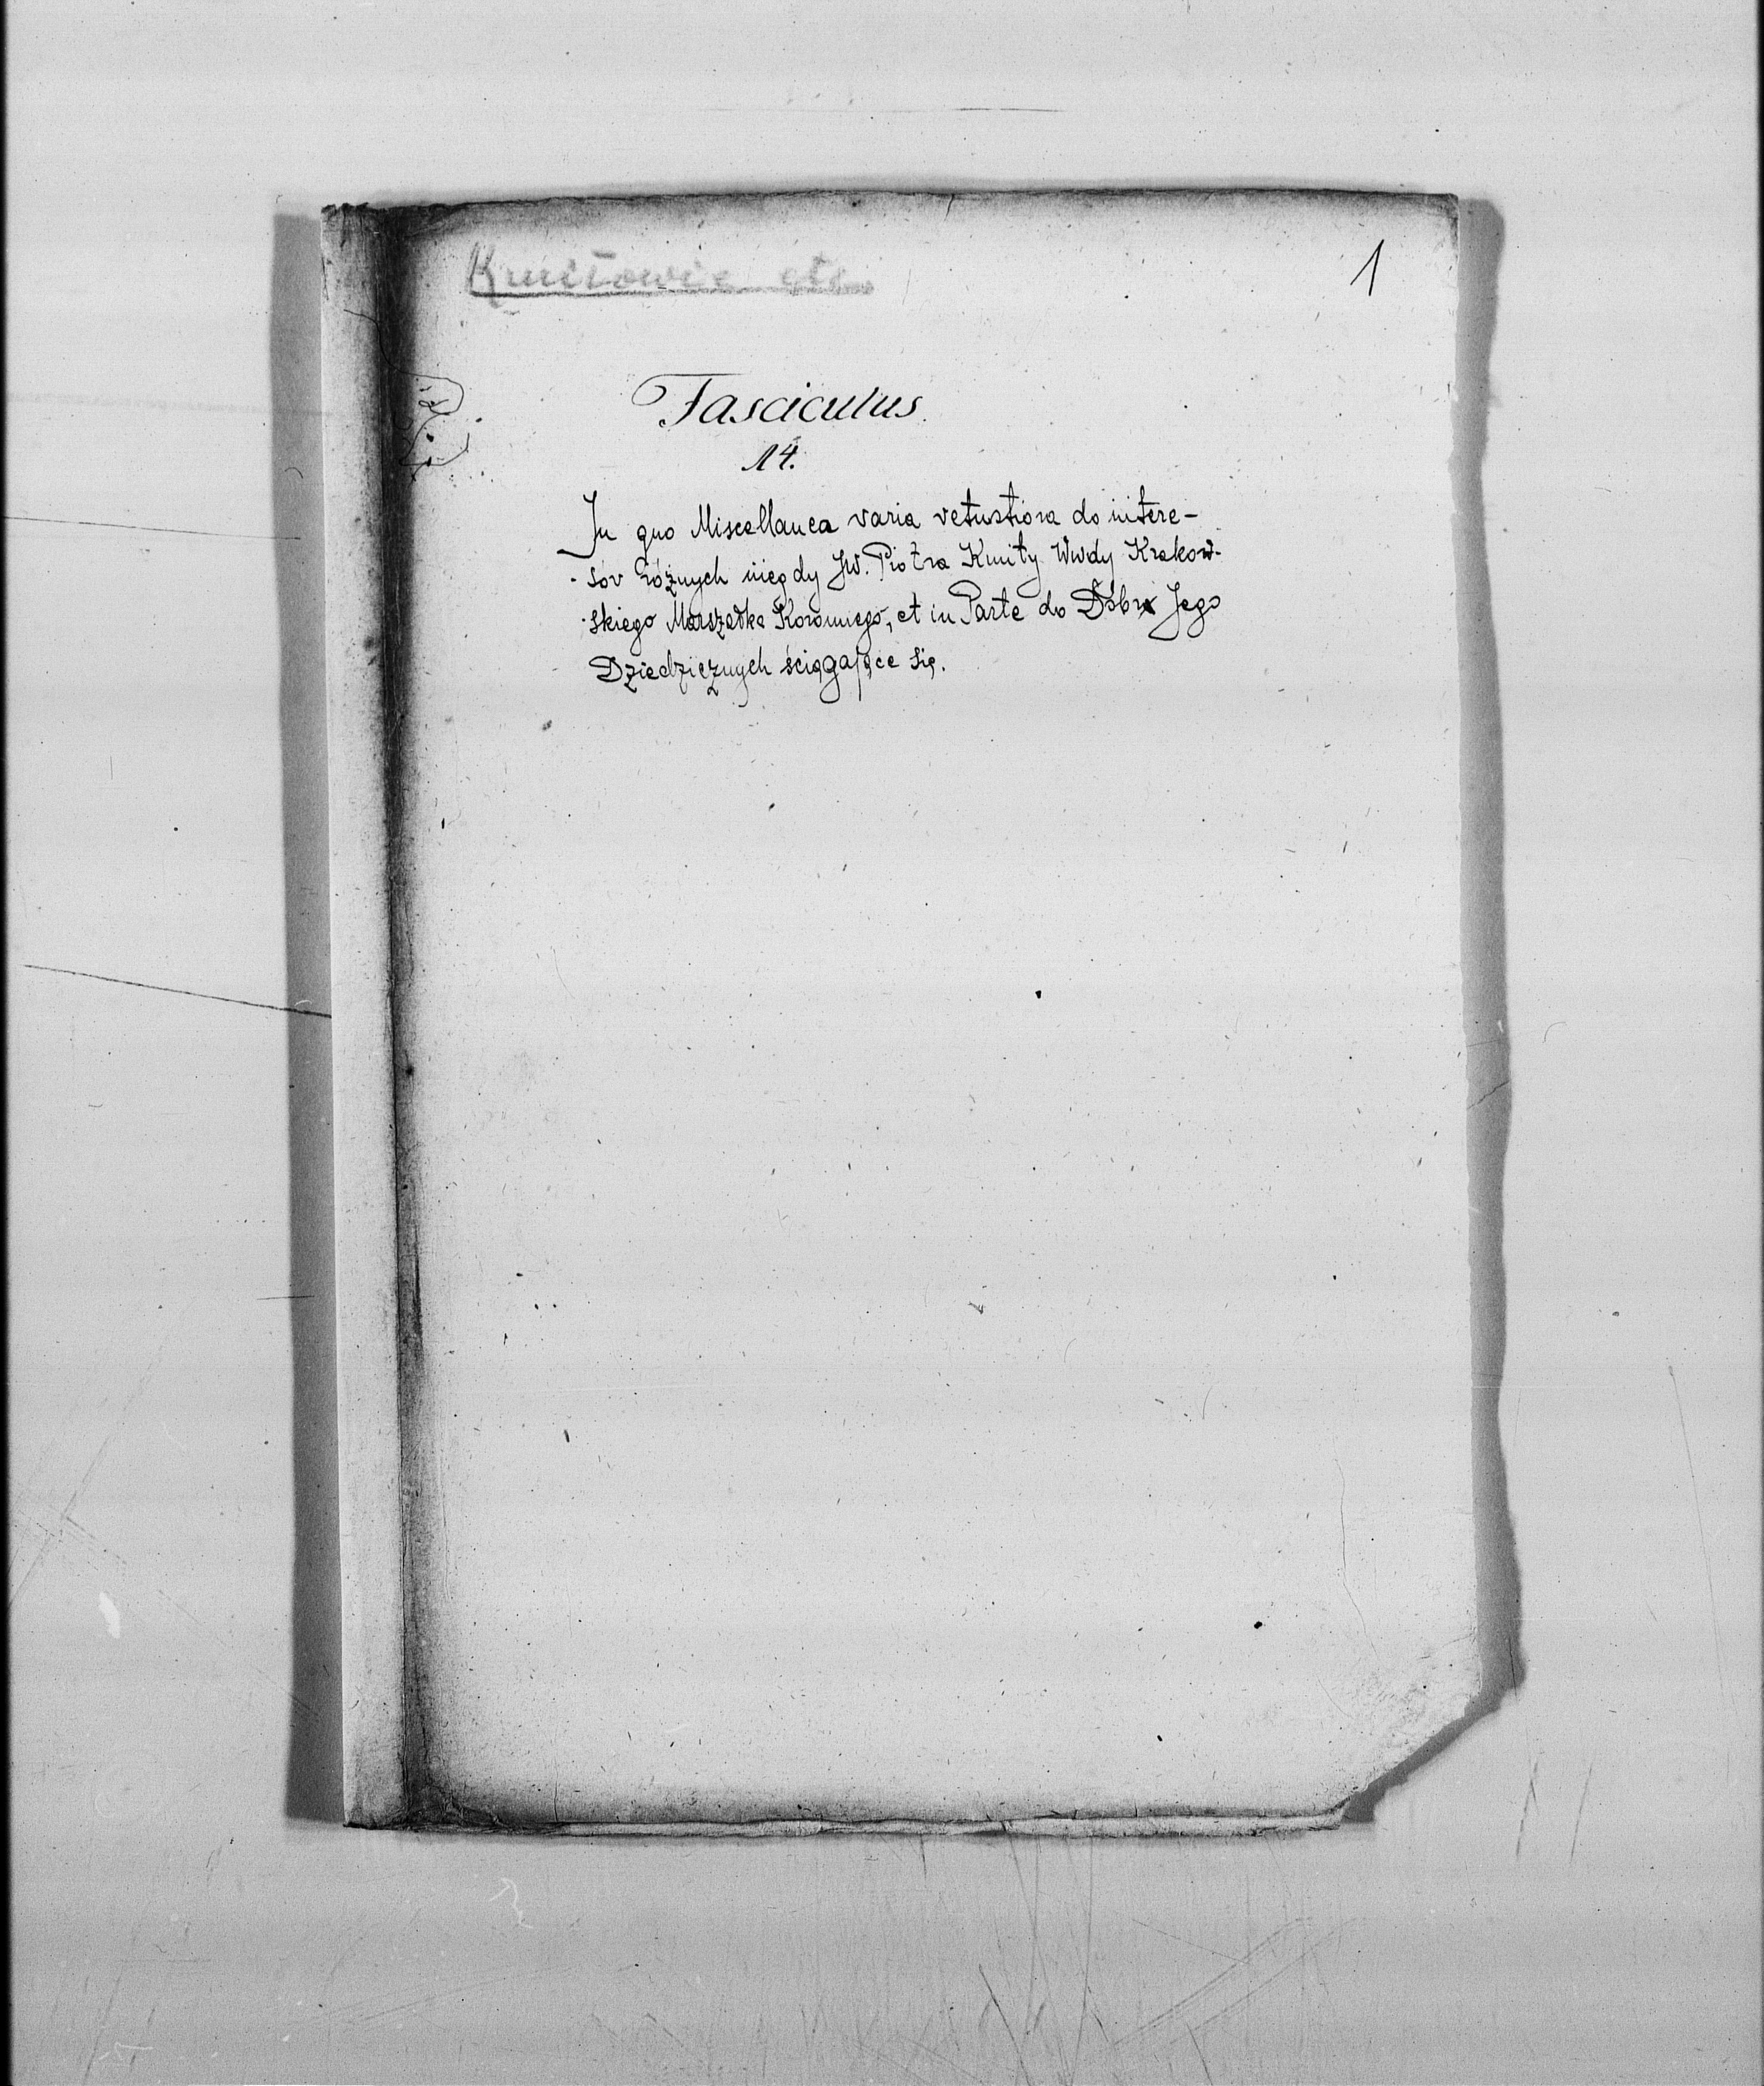 Kmitowie etc.
1
Fasciculus
14.
In quo Miscellanea varia vetustiora do intere-
sów różnych niegdy JW. Piotra Kmity Wwdy Krakow-
skiego Marszałka Koronnego, et in Parte do Dóbr Jego
Dziedzicznych ściągające się.